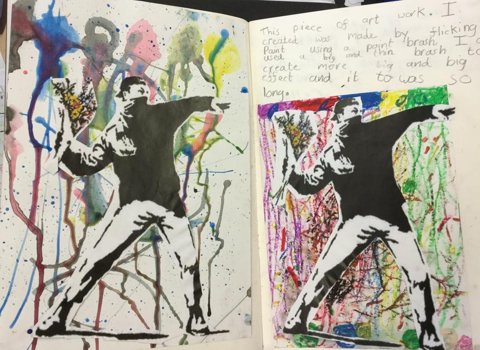 This piece of art work. I
created was made by flicking
Paint using a paint brush. I
used a big and thin brush to
create more big and big
effect and it to was so
long.